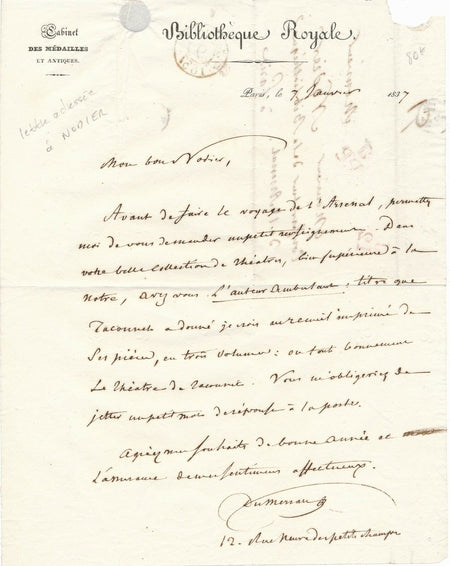 Cabinet
DES MÉDAILLES
ET ANTIQUES.
Bibliothèque Royale.
80€
Paris, le 7 Janvier 1837
lettre adressée
à NODIER
Mon bon Nodier,
Avant de faire le voyage de l'Arsenal, permettez
moi de vous demander un petit renseignement. Dans
votre belle collection de théâtres, bien supérieure à la
notre, avez vous L'auteur ambulant, titre que
Taconnet a donné je crois au recueil imprimé de
Ses pièces, en trois volumes: ou tout bonnement
Le théâtre de Taconnet. Vous m'obligeriez de
jetter un petit mot de réponse à la poste.
Agréez mes souhaits de bonne année et
L'assurance de mes sentimens affectueux.
DuMersan
12. Rue Neuve des petits champs